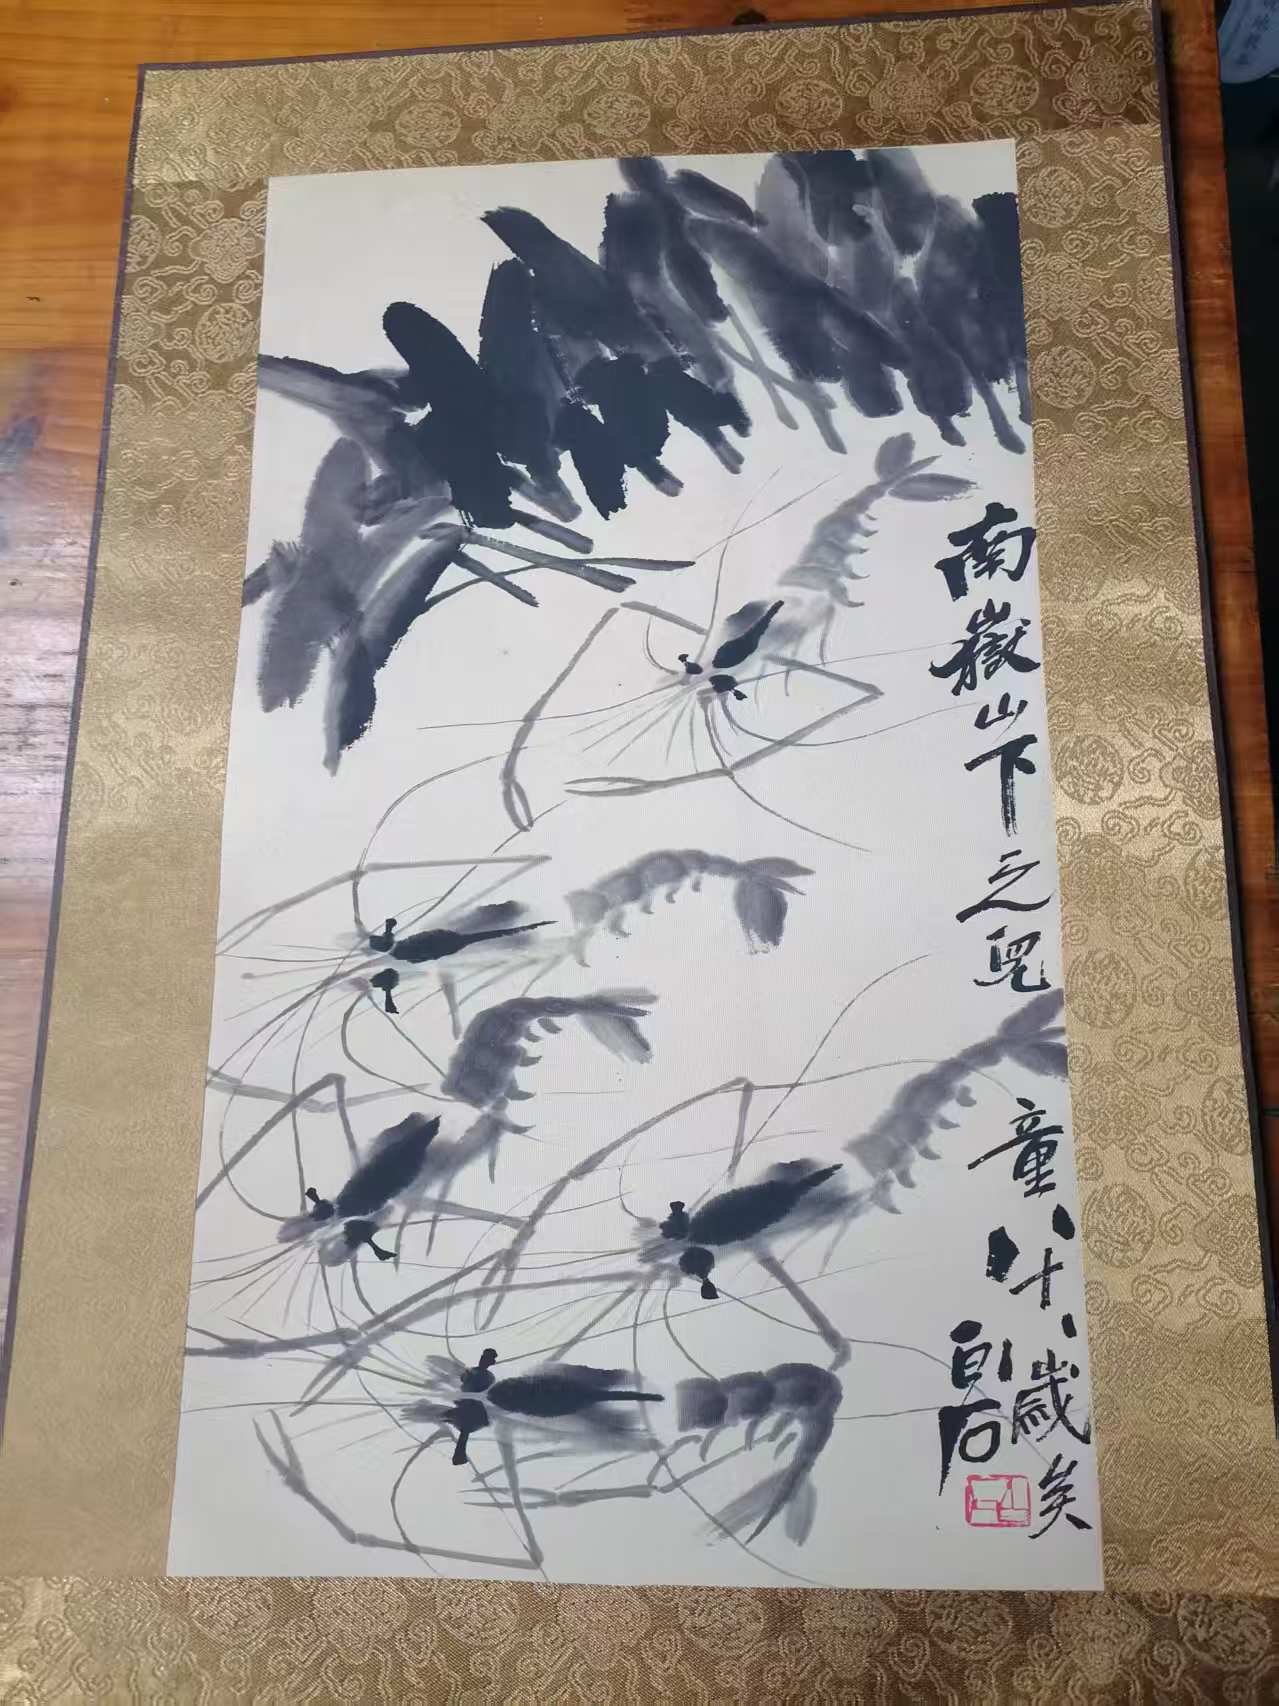 南嶽山下之兒
童八十八歲矣
白石